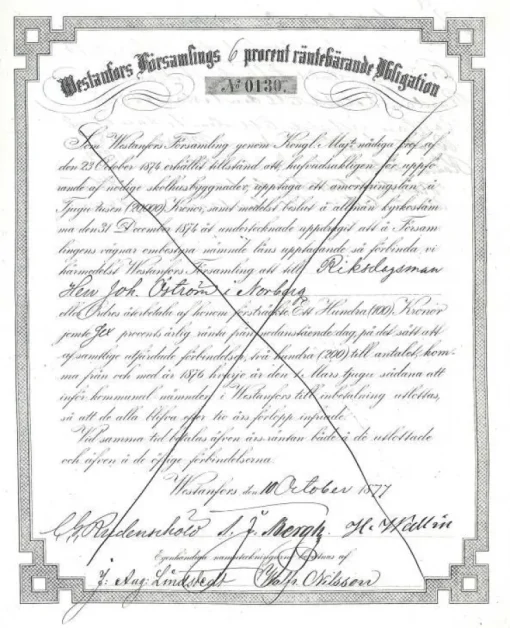 Westanfors Församlings 6 procent räntebärande Obligation
No 0130.
Som Westanfors Församling genom Kongl. Maj:ts nådiga bref af
den 23 October 1874 erhållit tillstånd att, hufvudsakligen för uppfö-
rande af nödige skolhusbyggnader, upptaga ett amorteringslån å
Tjugutusen (20,000) Kronor, samt medelst beslut å allmän kyrkostäm-
ma den 31 December 1874 åt undertecknade uppdragit att å Försam-
lingens vägnar ombesörja nämnde låns upptagande så förbinda vi
härmedelst Westanfors Församling att till Riksdagsman
Herr Joh. Öström i Norberg
eller Ordres återbetala af honom försträckte Ett Hundra (100) Kronor
jemte Sex procents årlig ränta från nedanstående dag, på det sätt att
af samtlige utfärdade förbindelser, två hundra (200) till antalet, kom-
ma från och med år 1876 hvarje år den 1. Mars tjugu sådana att
inför kommunal nämnden i Westanfors till inbetalning utlottas,
så att de alla blifva efter tio års förlopp infriade.
Vid samma tid betalas äfven års-räntan både å de utlottade
och äfven å de öfrige förbindelserna.
Westanfors den 10 October 1877
C. G. Rydenschöld S. J. Bergh H. Hedlin
Egenhändiga namnteckningar bevittnas af
J. Aug: Lindstedt Wolfr. Nilsson